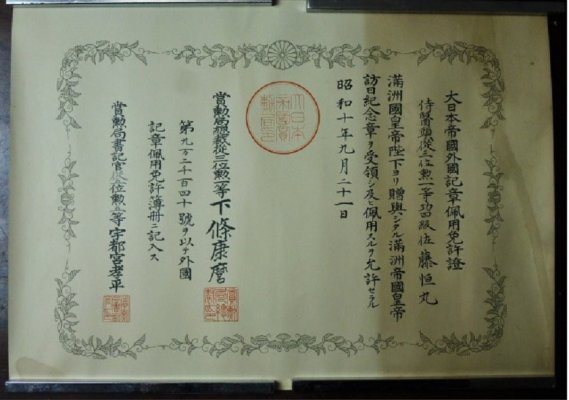 大日本帝國外國記章佩用免許證
侍醫頭從三位勲一等功四級佐藤恒丸
滿洲國皇帝陛下ヨリ贈與シタル滿洲帝國皇帝
訪日紀念章ヲ受領シ及ヒ佩用スルヲ允許セラル
昭和十年九月二十一日
大日本
帝國賞
勲局印
賞勲局總裁從三位勲二等下條康麿
第九万二千百四十號ヲ以テ外國
記章佩用免許簿册ニ記入ス
賞勲局書記官 位勲 等宇都宮孝平